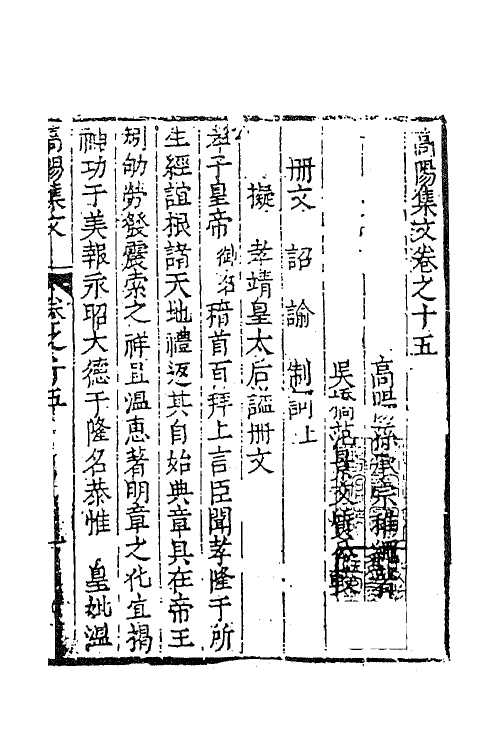 高陽集文卷之十五
高陽孫承宗稚繩著
吳橋范景文
冊文 詔 諭 制詞上
擬 孝靖皇太后謚冊文
孝子皇帝御名稽首百拜上言臣聞孝隆于所
生經誼根諸天地禮返其自始典章具在帝王
矧劬勞發震索之祥且溫惠著明章之化宜揭
功于美報永昭大德于隆名恭惟 皇妣溫
高陽集文 卷之十五